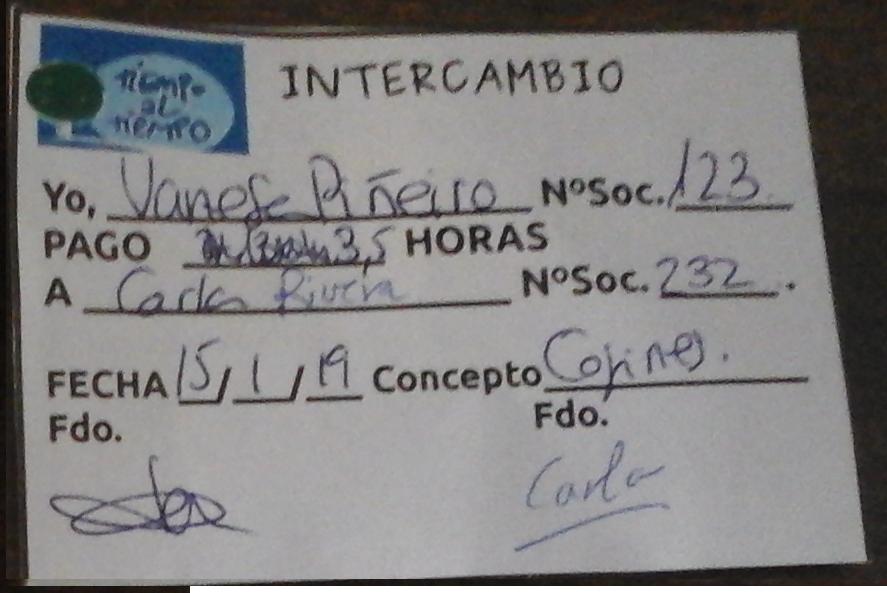 tiempo
al
tiempo
INTERCAMBIO
Yo, Vanesa Piñeiro NºSoc. 123
PAGO 3,5 HORAS
A Carla Rivera NºSoc. 232.
FECHA 15/1/19 Concepto Cojines.
Fdo. Fdo.
Carla